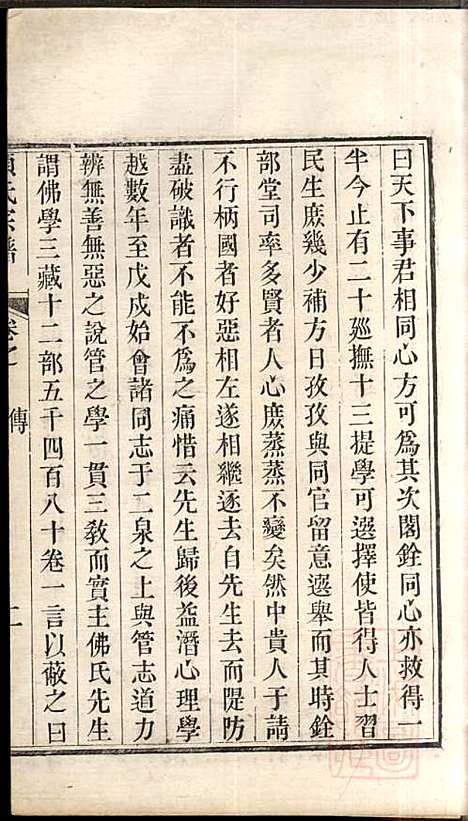 曰天下事君相同心方可爲其次閣銓同心亦救得一
半今止有二十廵撫十三提學可選擇使皆得人士習
民生庶幾少補方日孜孜與同官留意選舉而其時銓
部堂司率多賢者人心庶蒸蒸不變矣然中貴人于請
不行柄國者好惡相左遂相繼逐去自先生去而隄防
盡破識者不能不爲之痛惜云先生歸後益潛心理學
越數年至戊戍始會諸同志于二泉之上與管志道力
辨無善無惡之說管之學一貫三敎而實主佛氏先生
謂佛學三藏十二部五千四百八十卷一言以蔽之曰
氏宗譜
卷之
傳
二